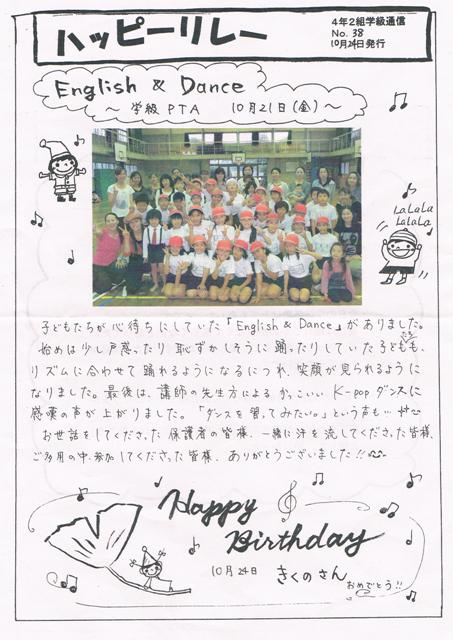 ハッピーリレー
4年2組学級通信
No. 38
10月24日発行
English & Dance
〜 学級PTA 10月21日(金)〜
LaLaLa
LaLaLa
子どもたちが心待ちにしていた「English & Dance」がありました。
始めは少し戸惑ったり恥ずかしそうに踊ったりしていた子どもたちも、
リズムに合わせて踊れるようになるにつれ、笑顔が見られるように
なりました。最後は、講師の先生方によるかっこいいK-popダンスに
感嘆の声が上がりました。「ダンスを習ってみたい。」という声も…
お世話をしてくださった保護者の皆様、一緒に汗を流してくださった皆様、
ご多用の中、参加してくださった皆様、ありがとうございました!!
Happy
Birthday
10月24日 きくのさん
おめでとう!!